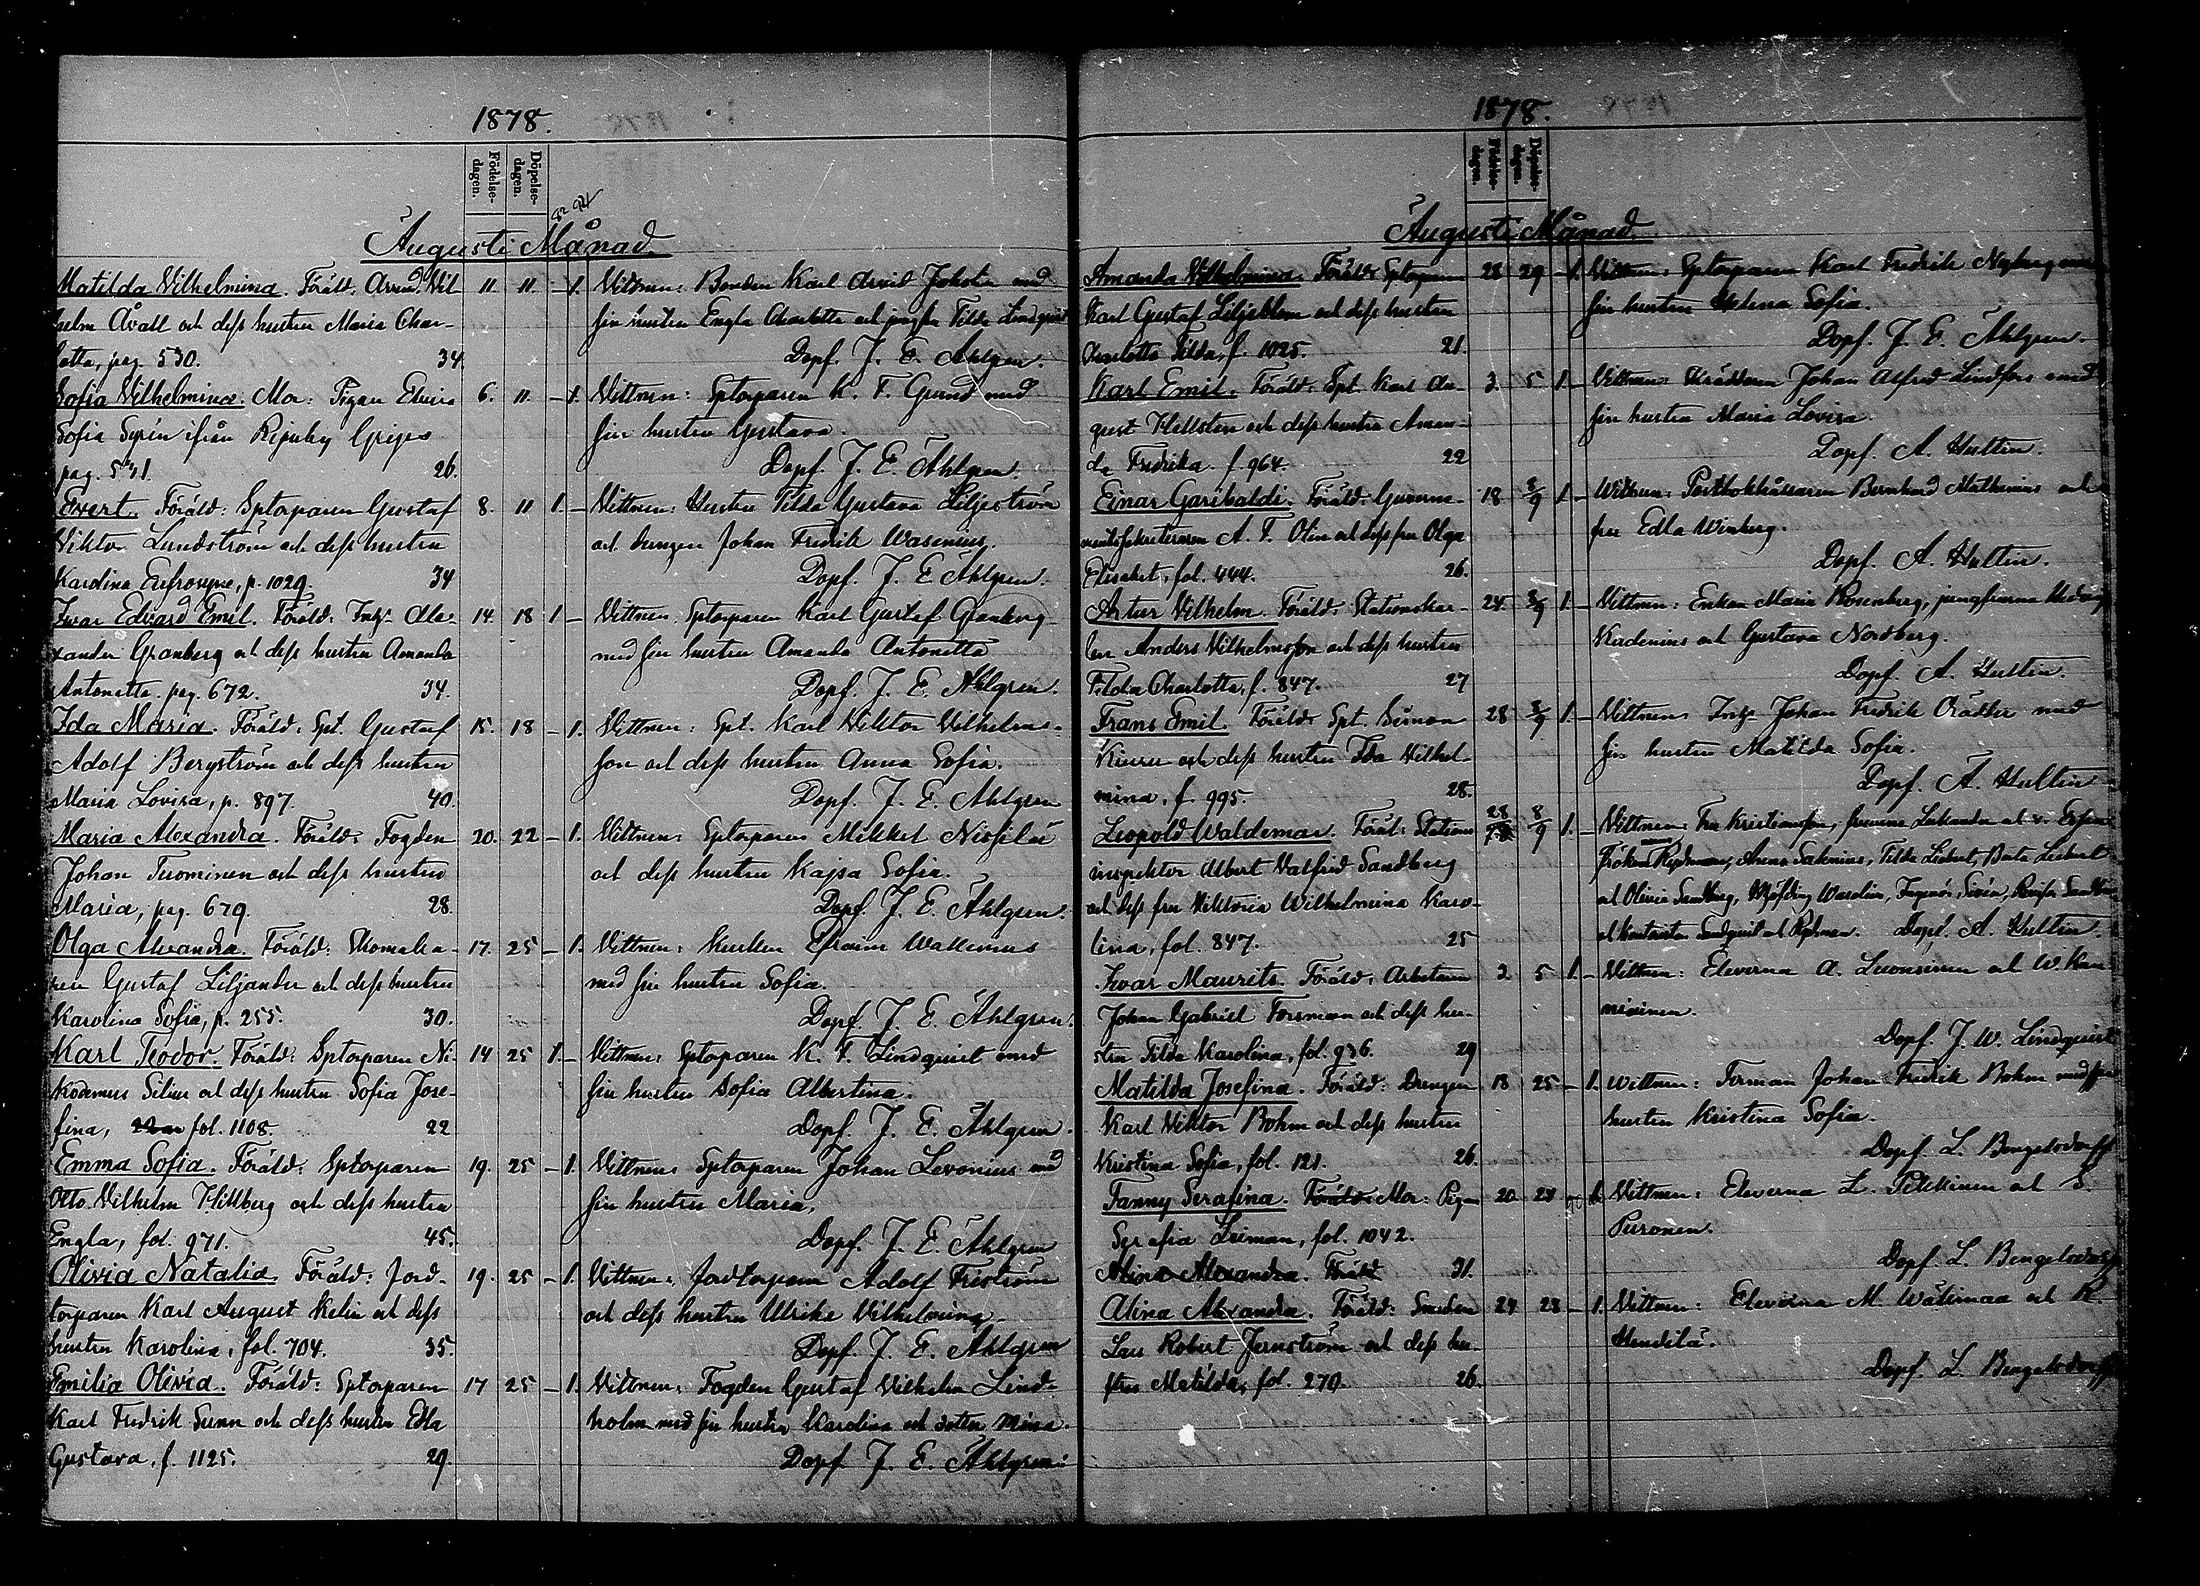 1878.
Födelse-
dagen.
Döpelse-
dagen.
Augusti Månad.
Matilda Vilhelmina. Föräld. Arvid Vil
helm Åvall och dess hustru Maria Char-
lotta, pag. 530. 34.
11. 11. – 1.
Vittnen: Bonden Karl Arvid med
sin hustru Engla Charlotta och jungfru Tilda Lindqvist
Döpf. J. E. Ahlgren.
Sofia Vilhelmina. Mor: Pigan
Sofia Syrén ifrån
pag. 531. 26.
6. 11. – 1.
Vittnen: Sptorparen K. F. Grund med
sin hustru Gustava.
Döpf. J. E. Ahlgren.
Evert. Föräld: Sptorparen Gustaf
Viktor Lundström och dess hustru
Karolina Eufrosyne, p. 1029. 34
8. 11 1. –
Vittnen: Hustru Tilda Gustava Liljeström
och drengen Johan Fredrik Wasenius.
Döpf. J. E. Ahlgren.
Ivar Edvard Emil. Föräld: Inhys Ale-
xander Granberg och dess hustru Amanda
Antonetta. pag. 672. 34.
14. 18 1 –
Vittnen: Sptorparen Karl Gustaf Granberg
med sin hustru Amanda Antonetta
Döpf. J. E. Ahlgren.
Ida Maria. Föräld: Spt. Gustaf
Adolf Bergström och dess hustru
Maria Lovisa, p. 897. 40.
15. 18 – 1.
Vittnen: Spt. Karl Viktor Vilhelms-
son och dess hustru Anna Sofia.
Döpf. J. E. Ahlgren
Maria Alexandra. Föräld: Fogden
Johan Tuominen och dess hustru
Maria, pag. 679. 28.
20. 22 – 1.
Vittnen: Sptorparen Mikkel
och dess hustru Kajsa Sofia.
Döpf. J. E. Ahlgren.
Olga Alexandra. Föräld: Skomaka-
ren Gustaf Liljander och dess hustru
Karolina Sofia, p. 255. 30.
17. 25 – 1.
Vittnen: Kusken Efraim Wallenius
med sin hustru Sofia.
Döpf. J. E. Ahlgren.
Karl Teodor. Föräld: Sptorparen Ni-
kodemus Silen och dess hustru Sofia Jose-
fina, fol. 1108. 22
14 25 1. –
Vittnen: Sptorparen K. F. Lindqvist med
sin hustru Sofia Albertina.
Döpf. J. E. Ahlgren.
Emma Sofia. Föräld: Sptorparen
Otto Vilhelm Hellberg och dess hustru
Engla, fol. 971. 45.
19. 25 – 1.
Vittnen: Sptorparen Johan Levonius med
sin hustru Maria,
Döpf. J. E. Ahlgren
Olivia Natalia. Föräld: Jord-
torparen Karl August Helin och dess
hustru Karolina, fol. 704. 35.
19. 25 – 1.
Vittnen: Jordtorparen Adolf Friström
och dess hustru Ulrika Vilhelmina
Döpf. J. E. Ahlgren
Emilia Olivia. Föräld: Sptorparen
Karl Fredrik Sunn och dess hustru Edla
Gustava, f. 1125. 29.
17 25 – 1.
Vittnen: Fogden Gustaf Vilhelm Lind-
holm med sin hustru Karolina och dotter Mina.
Döpf. J. E. Ahlgren.
1878.
Födelse-
dagen.
Döpelse-
dagen.
Augusti Månad.
Amanda Vilhelmina. Föräld: Sptorparen
Karl Gustaf Liljeblom och dess hustru
Charlotta Tilda, f. 1025. 21.
28 29 – 1.
Vittnen: Sptorparen Karl Fredrik Nyberg med
sin hustru Helena Sofia.
Döpf. J. E. Ahlgren.
Karl Emil. Föräld: Spt. Karl Au-
gust Hellsten och dess hustru Aman-
da Fredrika. f. 964. 22
3. 5 1 –
Vittnen: Skräddaren Johan Alfred Lindfors med
sin hustru Maria Lovisa.
Döpf. A. Hultin.
Einar Garibaldi. Föräld: Guverne-
mentssekreteraren A. F. Olin och dess fru Olga
Elisabet, fol. 444. 26.
18 1 –
Vittnen: Postbokhållaren Bernhard Mathenius och
fru Edla Winberg.
Döpf. A. Hultin.
Artur Vilhelm. Föräld: Stationskar-
len Anders Vilhelmsson och dess hustru
Tilda Charlotta, f. 847. 27
24. 1 –
Vittnen: Enkan Maria Rosenberg, jungfruarna Hedvig
och Gustava Nordberg.
Döpf. A. Hultin.
Frans Emil. Föräld: Spt. Simon
Kiuru och dess hustru Ida Vilhel-
mina, f. 995. 28.
28 1. –
Vittnen: Inhys Johan Fredrik med
sin hustru Matilda Sofia.
Döpf. A. Hultin
Leopold Waldemar. Föräl: Stations
inspektor Albert Valfrid Sandberg
och dess fru Viktoria Wilhelmina Karo-
lina, fol. 847. 25
28 8/9 1. –
Vittnen: Fru Kristiansson,
Tilda Liebert, Berta Liebert
och Olivia Sandberg,
Döpf. A. Hultin.
Ivar Maurits. Föräld: Arbetaren
Johan Gabriel Forsman och dess hu-
stru Tilda Karolina, fol. 936. 29
2 5 1. –
Vittnen: Eleverna A. Leonsinen och W. Kau
niainen.
Döpf. J. W. Lindqvist
Matilda Josefina. Föräld: Drengen
Karl Viktor Bohm och dess hustru
Kristina Sofia, fol. 121. 26.
18 25 – 1.
Vittnen: Forman Johan Fredrik Bohm med sin
hustru Kristina Sofia.
Döpf. L. Bengelsdorff
Fanny Serafina. Föräld: Mor: Pigan
Serafia Leiman, fol. 1042.
20 28 1.
Vittnen: Eleverna L. Pelkkinen och S.
Puronen.
Döpf. L. Bengelsdorff
Alina Alexandra. Föräld 31.
Alina Alexandra. Föräld: Smeden
Lars Robert Jernström och dess hu-
stru Matilda, fol. 270. 26.
24 28 – 1.
Vittnen: Eleverna M. och K.
Döpf. L. Bengelsdorff